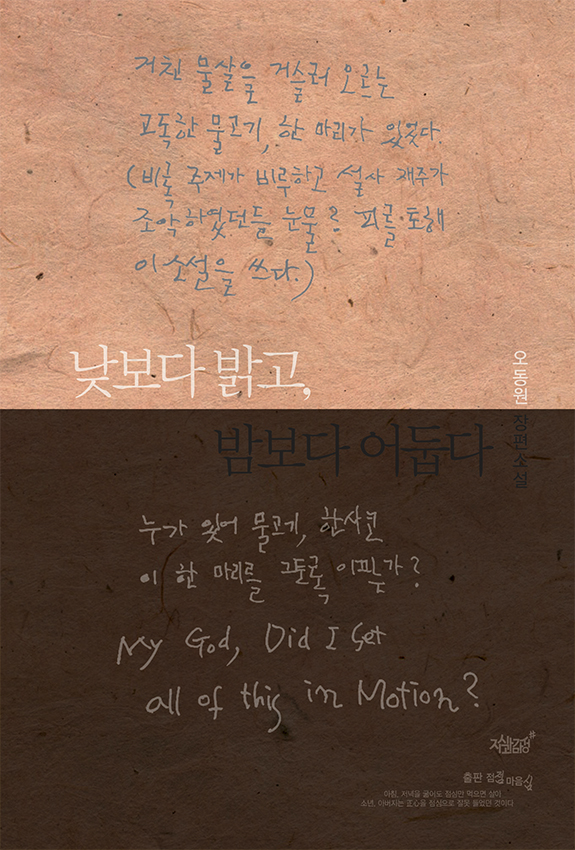 거친 물살을 거슬러 오르는
고독한 물고기, 한 마리가 있었다.
(비록 주제가 비루하고 설사 재주가
조악하였던들 눈물로 피를·토해
이 소설을 쓰다.)
낮보다 밝고,
밤보다 어둡다
오동원 장편소설
누가 있어 물고기, 한사코
이 한 마리를 그토록
My God, Did I Set
all of this in Motion?
출판 점점 마음실
아침, 저녁을 굶어도 점심만 먹으면 살아
소년, 아버지는 正心을 점심으로 잘못 들었던 것이다